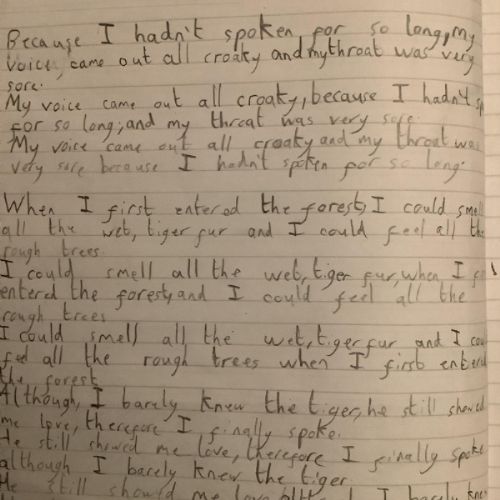 Because I hadn't spoken for so long, my
voice, came out all croaky and my throat was very
sore.
My voice came out all croaky, because I hadn't
for so long; and my throat was very sore.
My voice came out all croaky and my throat was
very sore because I hadn't spoken for so long.
When I first entered the forest, I could smell
all the wet, tiger fur and I could feel all the
rough trees.
I could smell all the wet, tiger fur, when I
entered the forest, and I could feel all the
rough trees
I could smell all the wet, tiger fur and I
feel all the rough trees when I first entered
the forest
Although, I barely knew the tiger, he still showed
me love, therefore I finally spoke.
He still showed me love, therefore I finally spoke
although I barely knew the tiger.
He still showed me love I barely knew